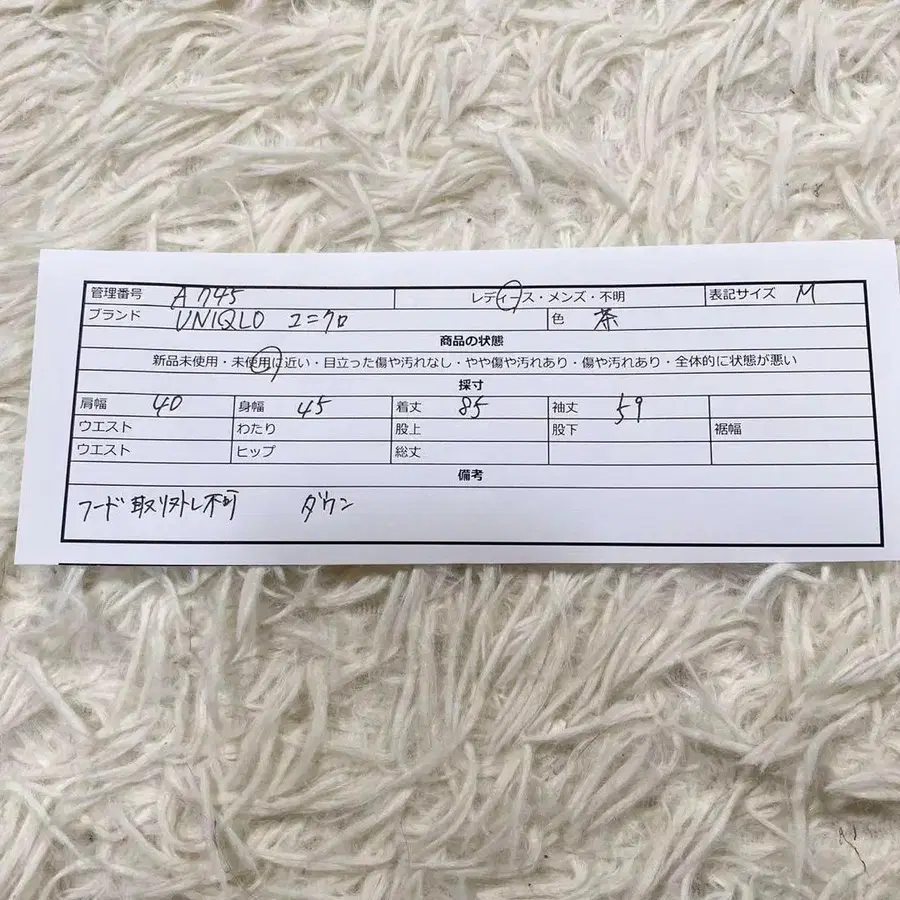 管理番号 A745 レディース・メンズ・不明 表記サイズ M
ブランド UNIQLO ユニクロ 色 茶
商品の状態
新品未使用・未使用に近い・目立った傷や汚れなし・やや傷や汚れあり・傷や汚れあり・全体的に状態が悪い
採寸
肩幅 40 身幅 45 着丈 85 袖丈 59
ウエスト わたり 股上 股下 裾幅
ウエスト ヒップ 総丈
備考
フード取り外し不可 ダウン